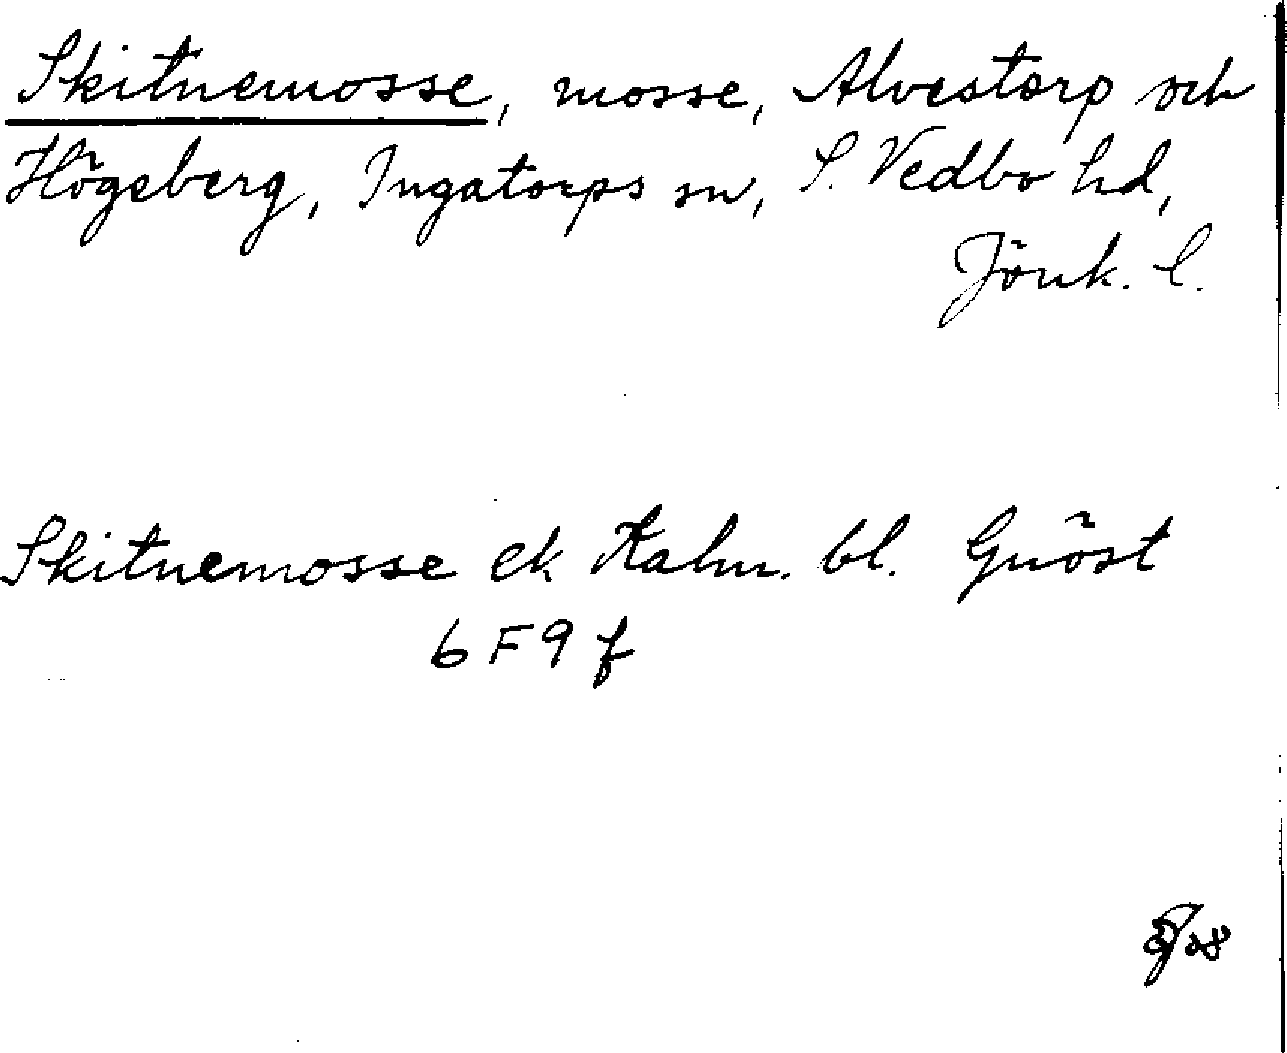 Skitnemosse, mosse, Alvestorp och
Högeberg, Ingatorps sn, S. Vedbo hd,
Jönk. l.
Skitnemosse ek Kalm. bl. Gnöst
6F9f